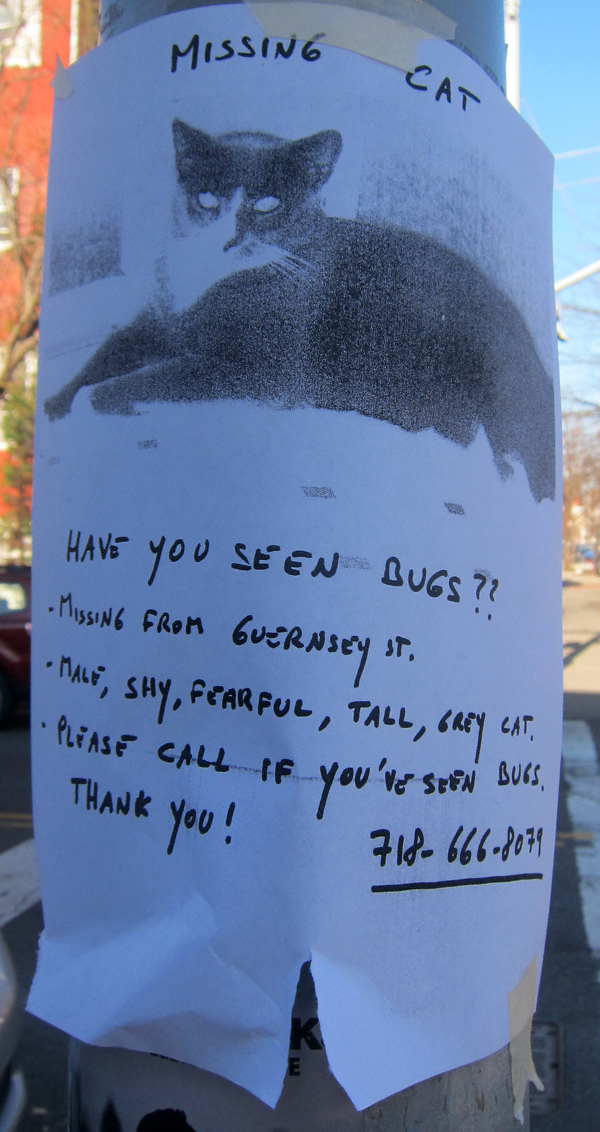 MISSING CAT
HAVE YOU SEEN BUGS??
· MISSING FROM GUERNSEY ST.
· MALE, SHY, FEARFUL, TALL, GREY CAT.
· PLEASE CALL IF YOU'VE SEEN BUGS.
THANK YOU!
718-666-8079